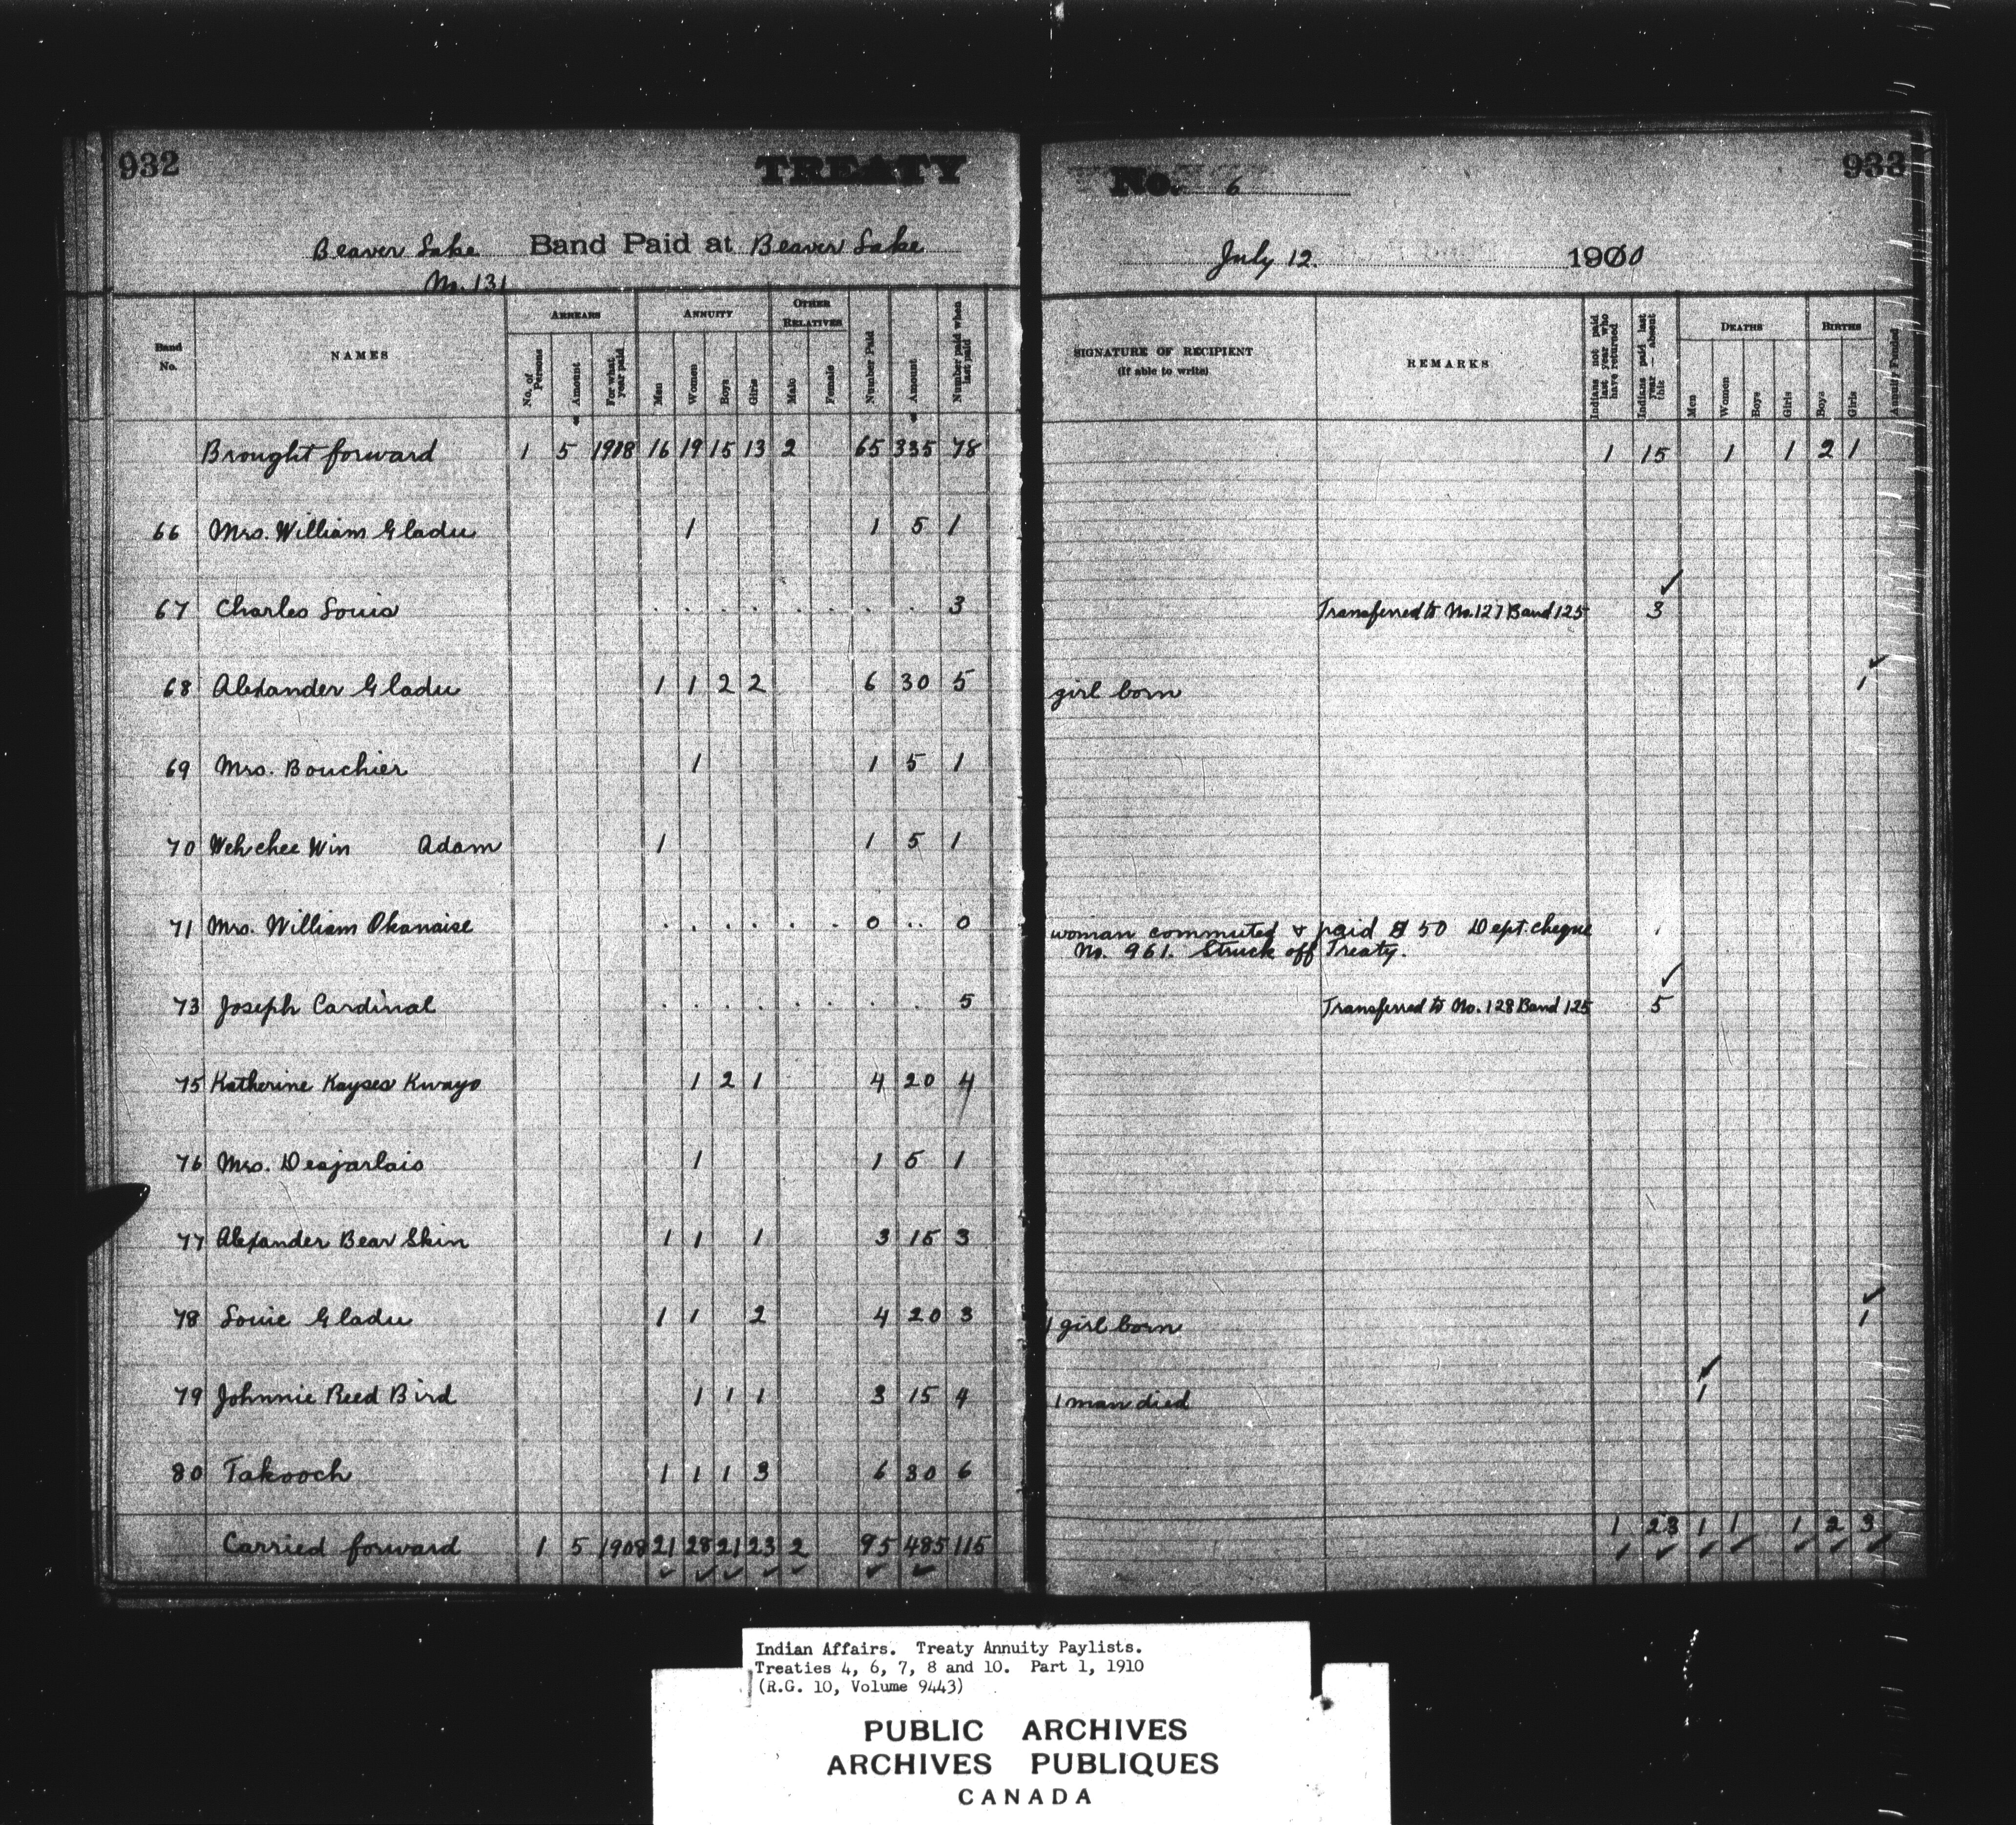 932
TREATY
No. 6
933
Beaver Lake Band Paid at Beaver Lake
No. 131
July 12. 1900
Band No.
NAMES
ARREARS
No. of Persons
Amount
For what year paid
ANNUITY
Men
Women
Boys
Girls
OTHER RELATIVES
Male
Female
Number Paid
Amount
Number paid when last paid
SIGNATURE OF RECIPIENT
(If able to write)
REMARKS
Indians not paid last year who have returned
Indians paid last year — absent this
DEATHS
Men
Women
Boys
Girls
BIRTHS
Boys
Girls
Annuity Funded
Brought forward 1 5 1908 16 19 15 13 2 65 335 78 1 15 1 1 2 1
66 Mrs. William Gladu 1 1 5 1
67 Charles Louis 3 Transferred to No. 127 Band 125 3
68 Alexander Gladu 1 1 2 2 6 30 5 girl born 1
69 Mrs. Bouchier 1 1 5 1
70 Wehchee Win Adam 1 1 5 1
71 Mrs. William Okanaise 0 0 woman commuted & paid $ 50 Dept. cheque
No. 961. Struck off Treaty.
73 Joseph Cardinal 5 Transferred to No. 128 Band 125 5
75 Katherine Kayses Kwayo 1 2 1 4 20 4
76 Mrs. Desjarlais 1 1 5 1
77 Alexander Bear Skin 1 1 1 3 15 3
78 Louie Gladu 1 1 2 4 20 3 1 girl born 1
79 Johnnie Reed Bird 1 1 1 3 15 4 1 man died 1
80 Takooch 1 1 1 3 6 30 6
Carried forward 1 5 1908 21 28 21 23 2 95 485 115 1 23 1 1 1 2 3
Indian Affairs. Treaty Annuity Paylists.
Treaties 4, 6, 7, 8 and 10. Part 1, 1910
(R.G. 10, Volume 9443)
PUBLIC ARCHIVES
ARCHIVES PUBLIQUES
CANADA